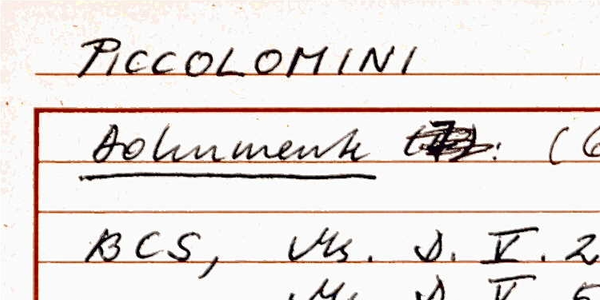 PICCOLOMINI
Dokumente : (6
BCS, Ms. D. V. 2
Ms. D V 5